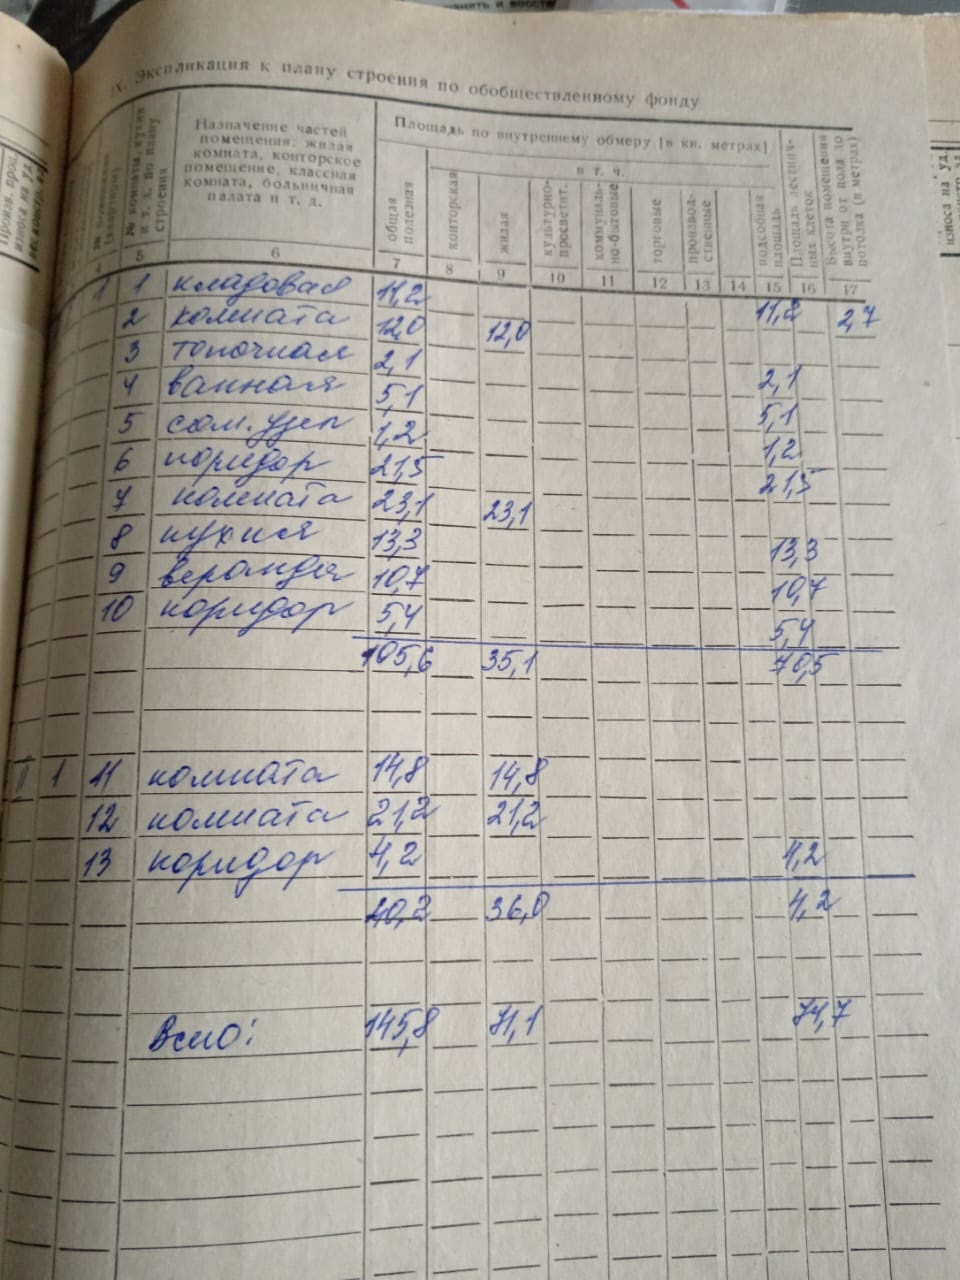 IX. Экспликация к плану строения по обобществленному фонду
№ комнаты, кухни и т. д. по плану строения
Назначение частей помещения: жилая комната, конторское помещение, классная комната, больничная палата и т. д.
Площадь по внутреннему обмеру [в кв. метрах]
в т. ч.
общая полезная
конторская
жилая
культурно-просветит.
коммуналь-но-бытовые
торговые
производ-ственные
подсобная площадь
Площадь лестнич-ных клеток
Высота помещения внутри от пола до потолка (в метрах)
4 5 6 7 8 9 10 11 12 13 14 15 16 17
1 1 кладовая 11,2 11,2 2,7
2 комната 12,0 12,0
3 топочная 2,1 2,1
4 ванная 5,1 5,1
5 сан. узел 1,2 1,2
6 коридор 21,5 21,5
7 комната 23,1 23,1
8 кухня 13,3 13,3
9 веранда 10,7 10,7
10 коридор 5,4 5,4
105,6 35,1 70,5
II 1 11 комната 14,8 14,8
12 комната 21,2 21,2
13 коридор 4,2 4,2
40,2 36,0 4,2
Всего: 145,8 71,1 74,7